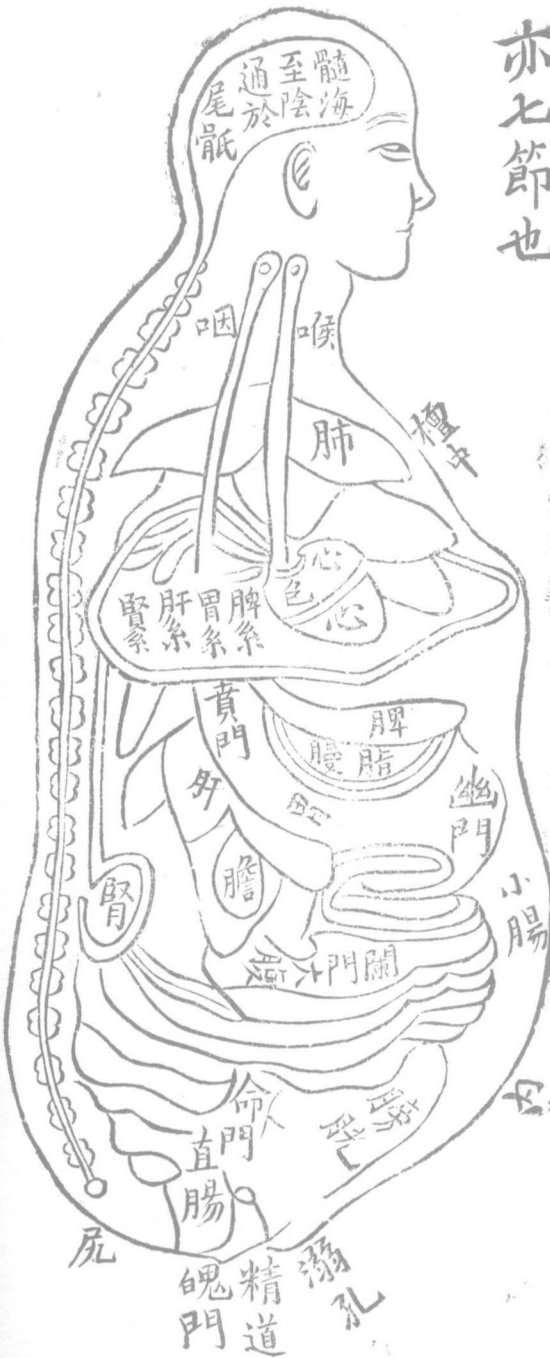 亦七節也
髓海
至陰
通於
尾骶
咽
喉
肺
膻中
心
色
心
脾系
胃系
肝系
腎系
賁門
脾
脂
膜
胃
幽門
肝
膽
腎
小腸
闌門
大腸
命門
膀胱
直腸
尻
溺孔
精道
魄門